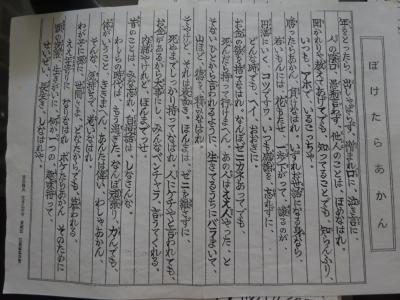 ぼけたらあかん
年をとったら 出しゃばらず、憎まれ口に 泣き言に
人の陰口 愚痴言わず、他人のことは、ほめなはれ。
聞かれりゃ 教えてあげても、知ってることでも、知らんふり、
いつも、アホで いるこっちゃ。
勝ったらあかん 負けなはれ、いずれお世話になる身なら、
若いもんに 花もたせ、一歩さがって、譲るのが、
円満にいく、コツですわ、いつも感謝を わすれずに、
どんな時でも、へイ、おおきに。
お金の欲を 捨てなはれ、なんぼゼニカネあってても、
死んだら持って行けまへん、あの人は ええ人やった、と
そない ひとから言われるように 生きてるうちに バラまいて、
山ほど、徳を 積みなはれ。
そやけど、それは表向き、ほんまは、ゼニを離さずに、
死ぬまでしっかり 持ってなはれ、人にケチやと言われても、
お金があるから大事にし、みんなベンチャラ、言うてくれる、
内緒やけれど、ほんまでっせ。
昔のことは、みな忘れ、自慢話は しなさんな、
わしらの時代は、もう過ぎた、なんぼ頑張り、力んでも、
体がいうこと、ききまへん、あんたは偉い、わしゃあかん、
そんな 気持ちで、おいなはれ。
わが子に孫に、世間さま、どなたからでも、慕われる、
ええ年寄りに なりなはれ ボケたらあかん そのために、
頭の洗濯、生きがいに 何か一つの、趣味持って、
せいぜい、長生き しなはれや。